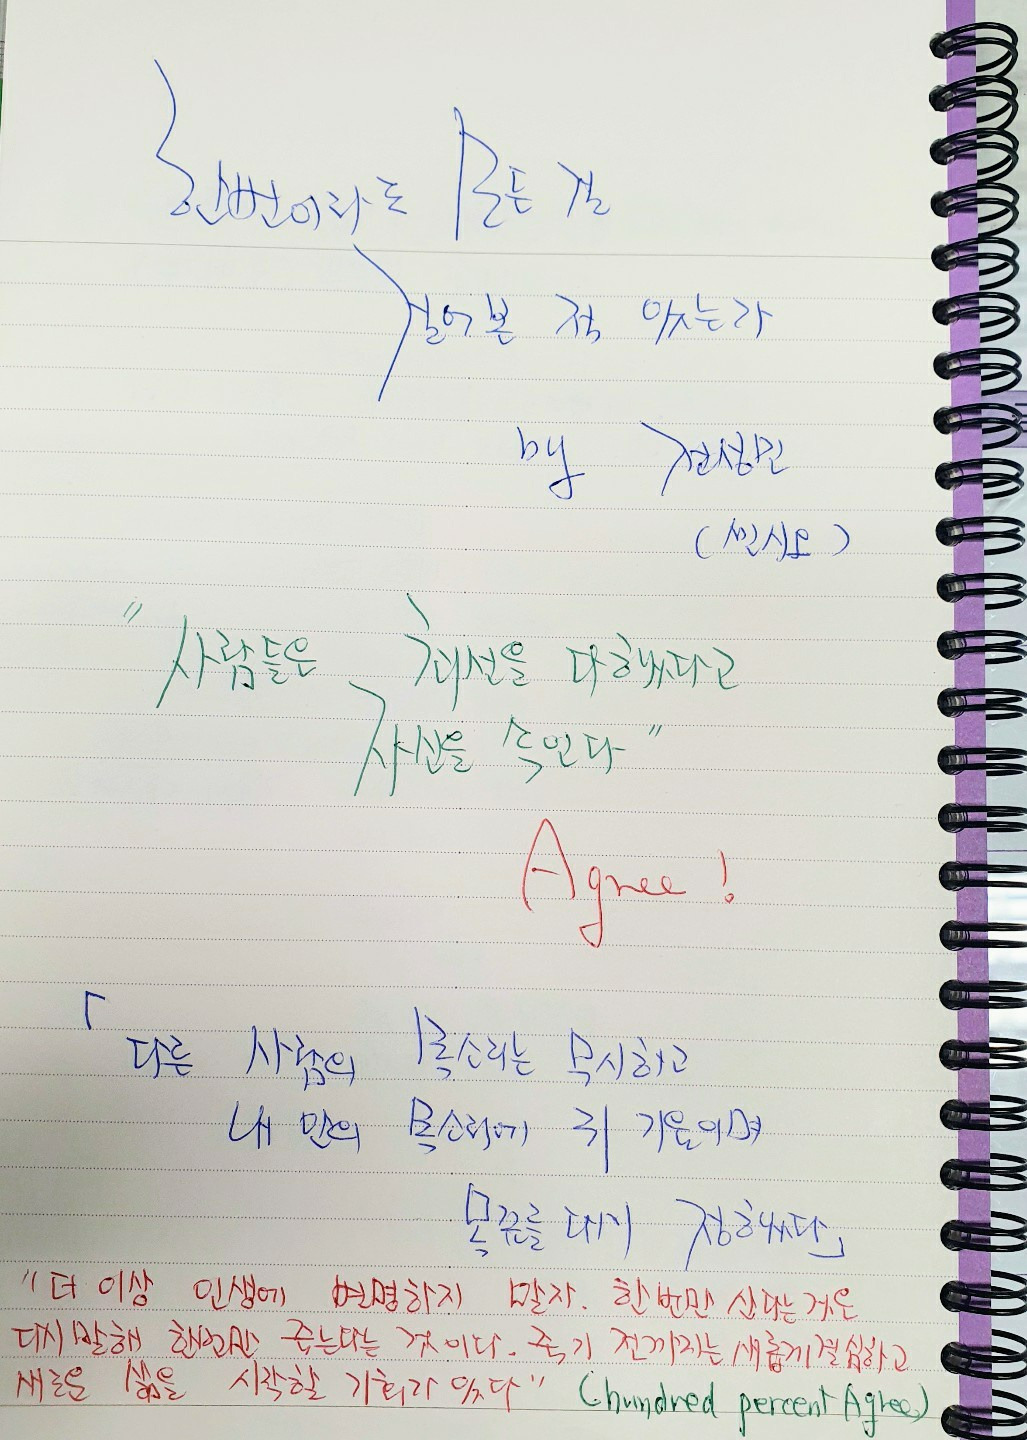 한번이라도 모든 걸
걸어본 적 있는가
by 전성민
(씬시오)
"사람들은 최선을 다했다고
자신을 속인다"
Agree!
「다른 사람의 목소리는 묵시하고
내 만의 목소리에 귀 기울이며
목표를 다시 정했다」
"더 이상 인생에 변명하지 말자. 한번만 산다는 것은
다시 말해 한번만 죽는다는 것이다. 죽기 전까지는 새롭게 결심하고
새로운 삶을 시작할 기회가 있다" (hundred percent Agree)